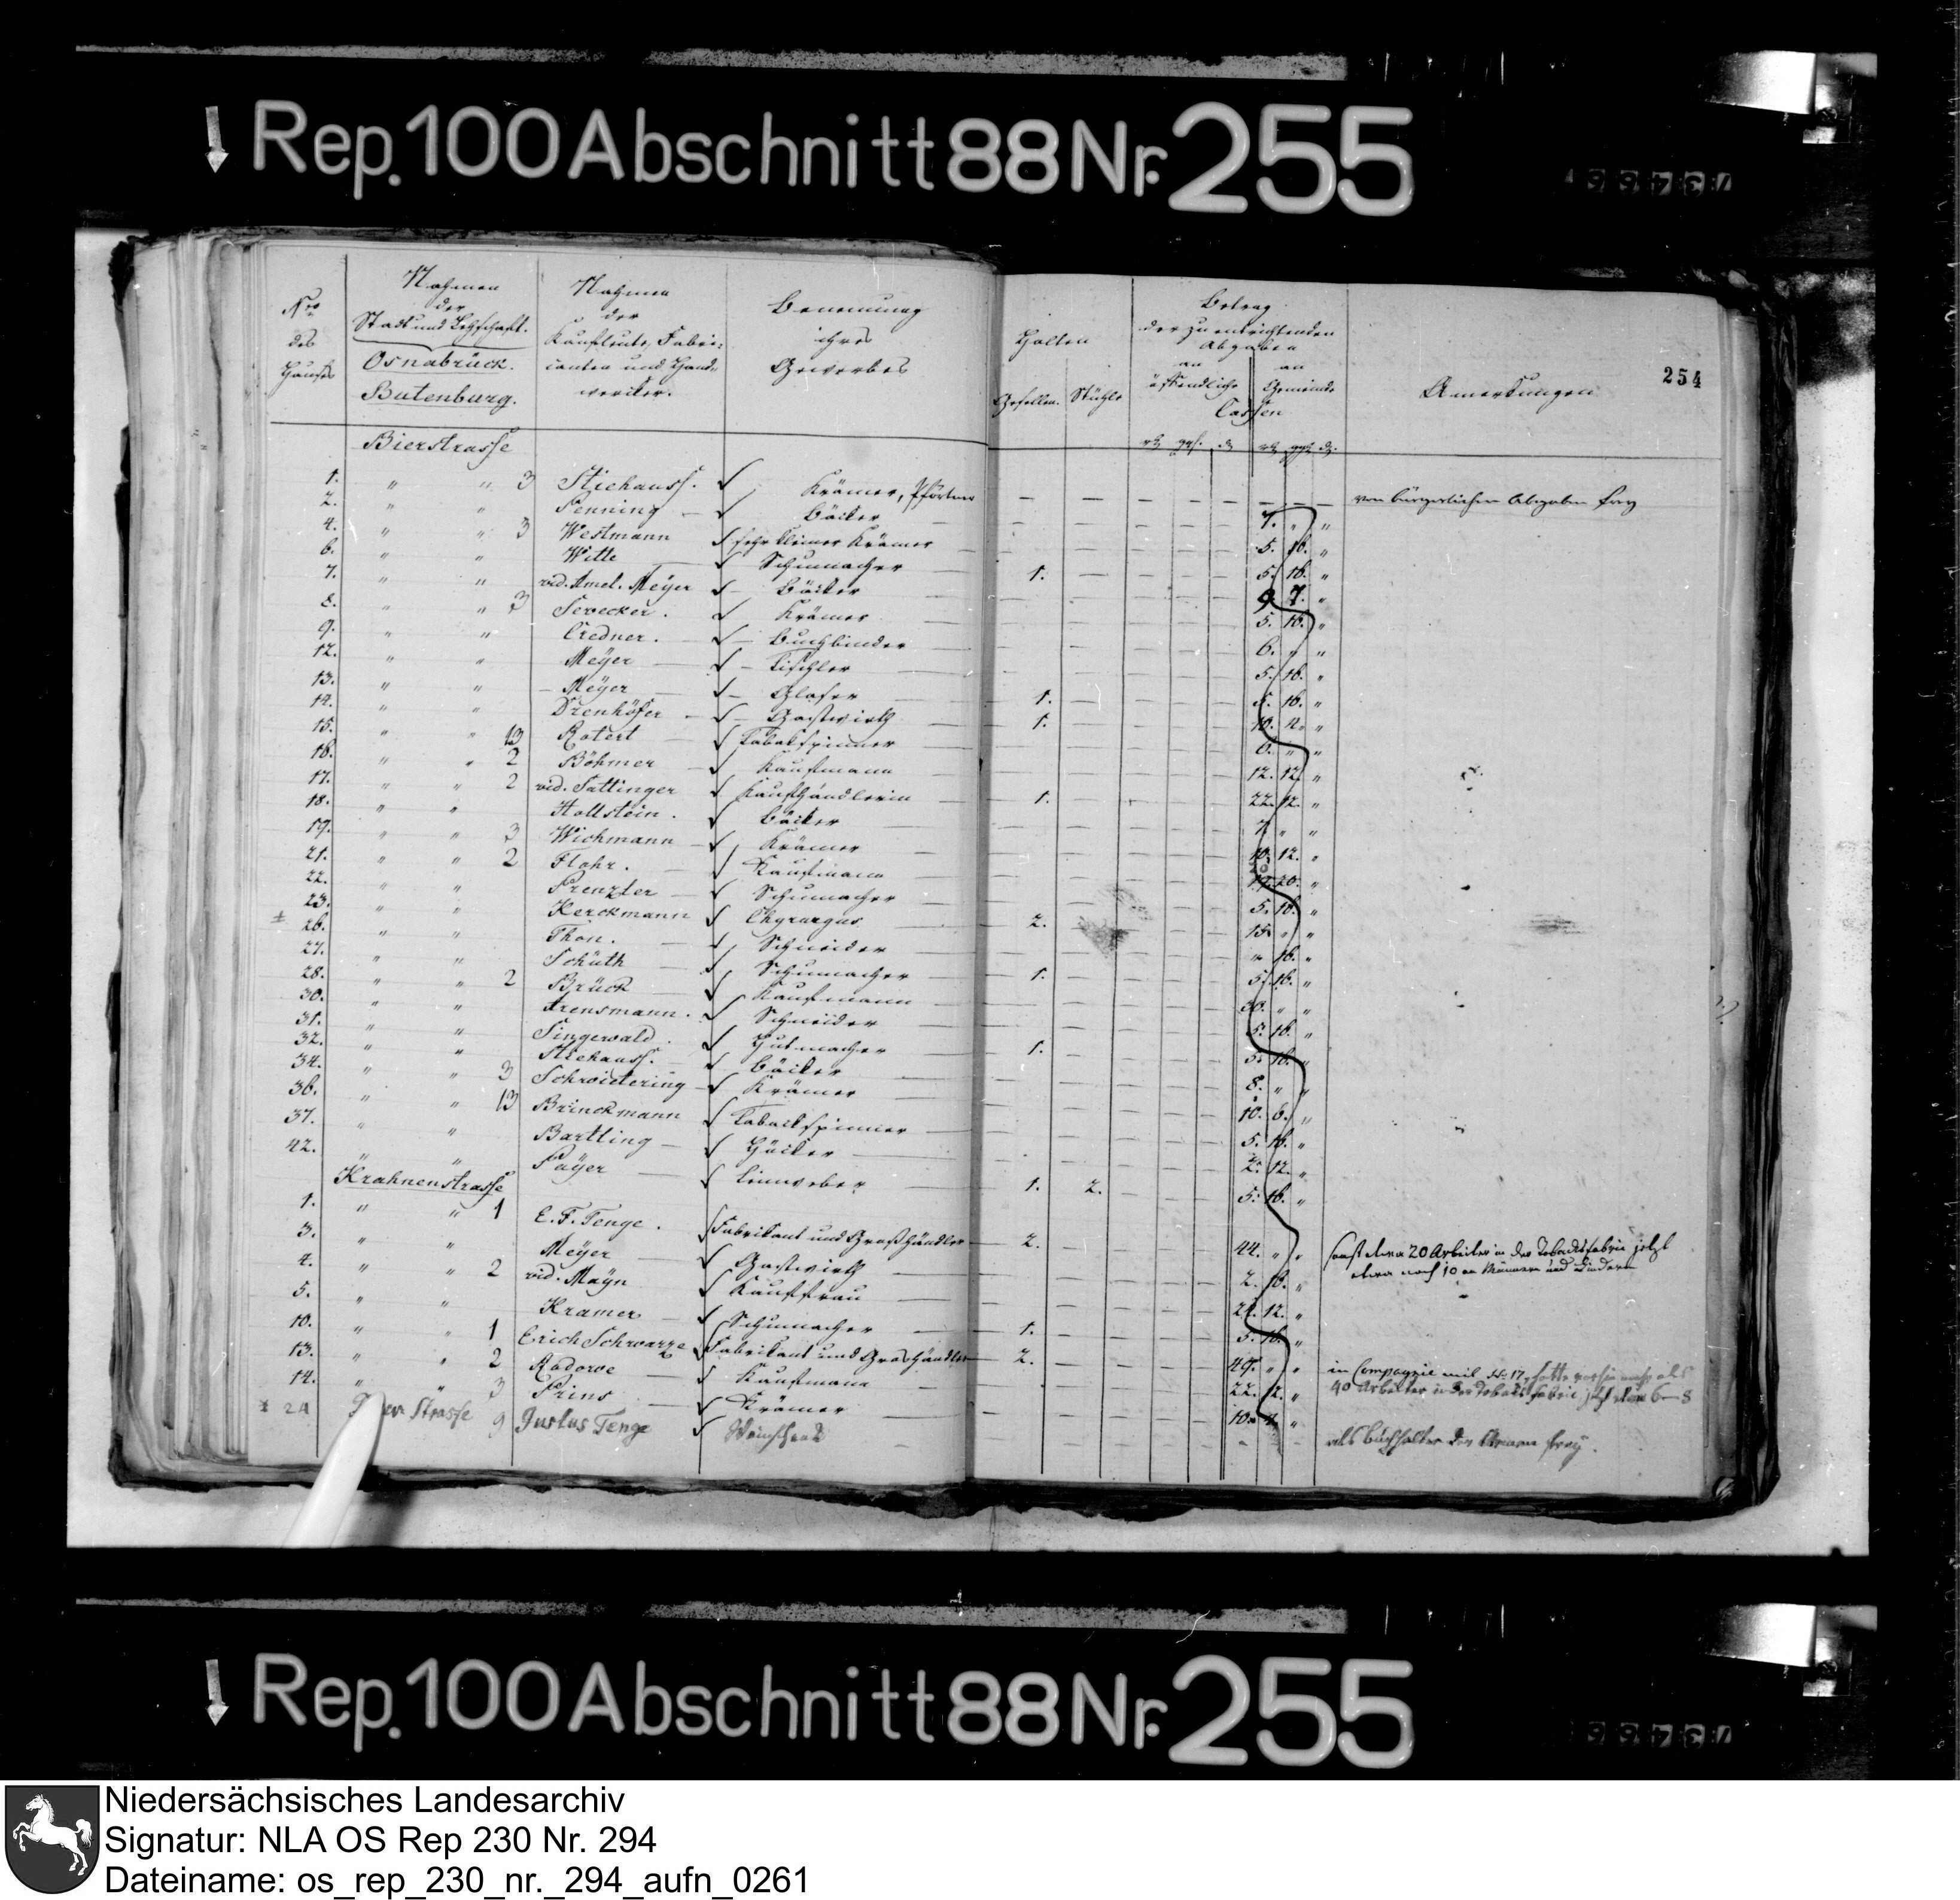 Rep. 100 Abschnitt 88 Nr. 255
254
Nro des Hauses
Nahmen der Stadt und Ortschaft.
Osnabrück.
Butenburg.
Nahmen der Kaufleute, Fabricanten und Handwerker.
Benennung ihres Gewerbes
Halten
Gesellen. Stühle
Betrag der zu entrichtenden Abgaben
an öffendliche an Gemeinde Cassen
Anmerkungen
Bierstrasse
1. " " 3 Stiehauss. Krämer, Pförtner — — — — — — — — von bürgerlichen Abgaben frey
2. " " Penning Bäcker 7. " "
4. " " 3 Westmann sehr kleiner Krämer 5. 16. "
6. " " Witte Schumacher 1. 5. 16. "
7. " " vid. Amel. Meÿer Bäcker 9. 7. "
8. " " 3 Sevecker. Krämer 5. 16. "
9. " " Credner. Buchbinder 6. " "
12. " " Meÿer Tischler 5. 16. "
13. " " Meÿer Glaser 1. 5. 16. "
14. " " Drenhöfer Gastwirth 1. 10. "
15. " " 13 Rotert Tabakspinner 6. " "
16. " " 2 Böhmer Kaufmann 12. 12. "
17. " " 2 vid. Sattinger Kaufhändlerin 1. 22. 12. "
18. " " Hollstein. Bäcker 7. " "
19. " " 3 Wichmann Krämer 10. 12. "
21. " " 2 Flohr. Kaufmann 20. "
22. " " Prenzler Schumacher 5. 16. "
23. " " Herckmann Chyrurgus 2. 15. " "
26. " " Thon. Schneider " 16. "
27. " " Schüth Schumacher 1. 5. 16. "
28. " " 2 Brück Kaufmann 30. " "
30. " " Arensmann. Schneider 5. 16. "
31. " " Singerwald. Hutmacher 1. 5. 16. "
32. " " Stiehauss. Bäcker 8. " "
34. " " 3 Schwietering Krämer 10. 6. "
36. " " 13 Brinckmann Tabackspinner 5. 16. "
37. " " Bartling Höcker 2. 12. "
42. " " Paÿer Linnweber 1. 2. 5. 16. "
Krahnenstrasse
1. " " 1 E. F. Tenge. Fabrikant und Großhändler 2. 44. " " sonst etwa 20 Arbeiter in der Tobacksfabric jetzt
etwa noch 10 an Männern und Kindern
3. " " Meÿer Gastwirth 2. 16. "
4. " " 2 vid. Maÿn Kauffrau 24. 12. "
5. " " Kramer Schumacher 1. 5. 16. "
10. " " 1 Erich Schwarze Fabrikant und Großhändler 2. 49. " " in Compagnie mit N. 17, hatte vorhin mehr als
40 Arbeiter in der Tobacksfabric jetzt etwa 6-8
13. " " 2 Rodowe Kaufmann 22. 12. "
14. " " 3 Prins Krämer 10. "
24 Strasse 9 Justus Tenge Weinschenk als Buchhalter der frey.
Rep. 100 Abschnitt 88 Nr. 255
Niedersächsisches Landesarchiv
Signatur: NLA OS Rep 230 Nr. 294
Dateiname: os_rep_230_nr._294_aufn_0261